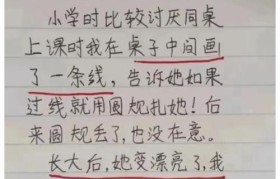 小学时比较讨厌同桌
上课时我在桌子中间画
了一条线，告诉她如果
过线就用圆规扎她！后
来圆规丢了，也没在意。
长大后，她变漂亮了，我